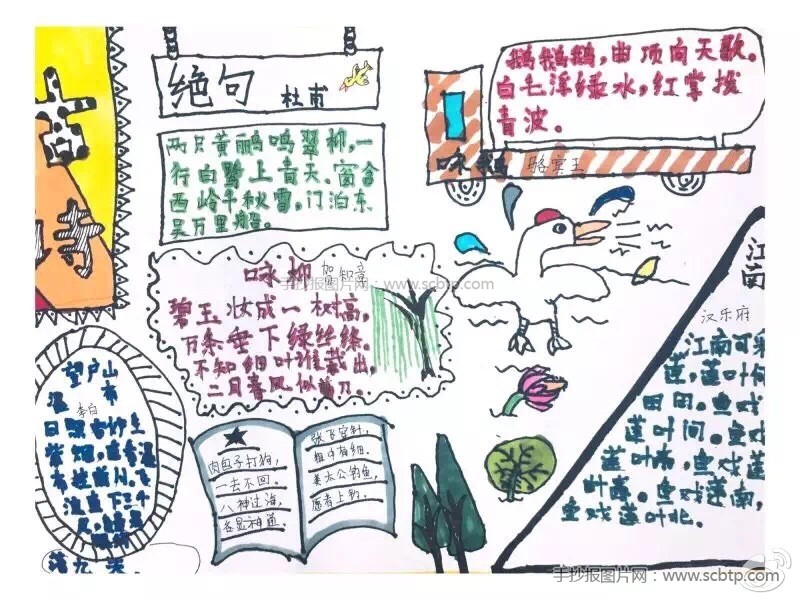 古
诗
绝句
杜甫
两只黄鹂鸣翠柳,一
行白鹭上青天。窗含
西岭千秋雪,门泊东
吴万里船。
鹅鹅鹅,曲项向天歌。
白毛浮绿水,红掌拨
青波。
咏鹅 骆宾王
咏柳 贺知章
碧玉妆成一树高,
万条垂下绿丝绦。
不知细叶谁裁出,
二月春风似剪刀。
手抄报图片网:www.scbtp.com
江
南
汉乐府
江南可采
莲,莲叶何
田田。鱼戏
莲叶间。鱼戏
莲叶东,鱼戏莲
叶西。鱼戏莲南,
鱼戏莲叶北。
望庐山
瀑布
李白
日照香炉生
紫烟,遥看瀑
布挂前川。飞
流直下三千
尺,
落九天。
肉包子打狗,
一去不回。
八神过海,
各显神通。
张飞穿针,
粗中有细。
姜太公钓鱼,
愿者上钩。
手抄报图片网:www.scbtp.com